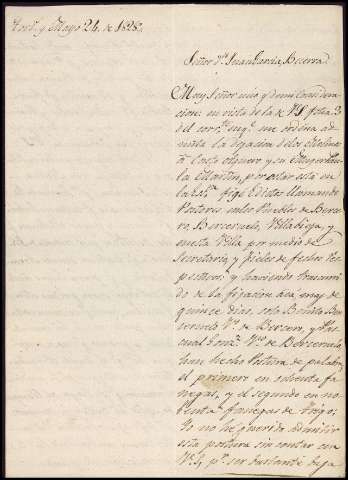 Tord.ª y Mayo 24. de 1828.
Señor Dn. Juan García Becerra
Muy Señor mio y de mi considera
cion: en vista de la de VS fecha 3
del corr.te me ordena ad
mita la dejacion de los Molinos
á Costa y su Muger
la Martin, por estar esta en
fige Edictos llamando
Postores en los Pueblos de Berce
ro, Berceruelo, Villavieja, y
en esta Villa por medio de
Secretarios, y fieles de fechos res
pectivos: y haviendo transcurri
do de la fijacion acá mas de
quince dias, solo Benito
V.º de Bercero, y Pas
cual V.no de Berceruelo
han hecho Postura de palabra
el primero en ochenta fa
negas, y el segundo en no
benta fanegas de trigo:
Yo no he querido admitir
esta postura sin contar con
VS, pr. ser bastante baja